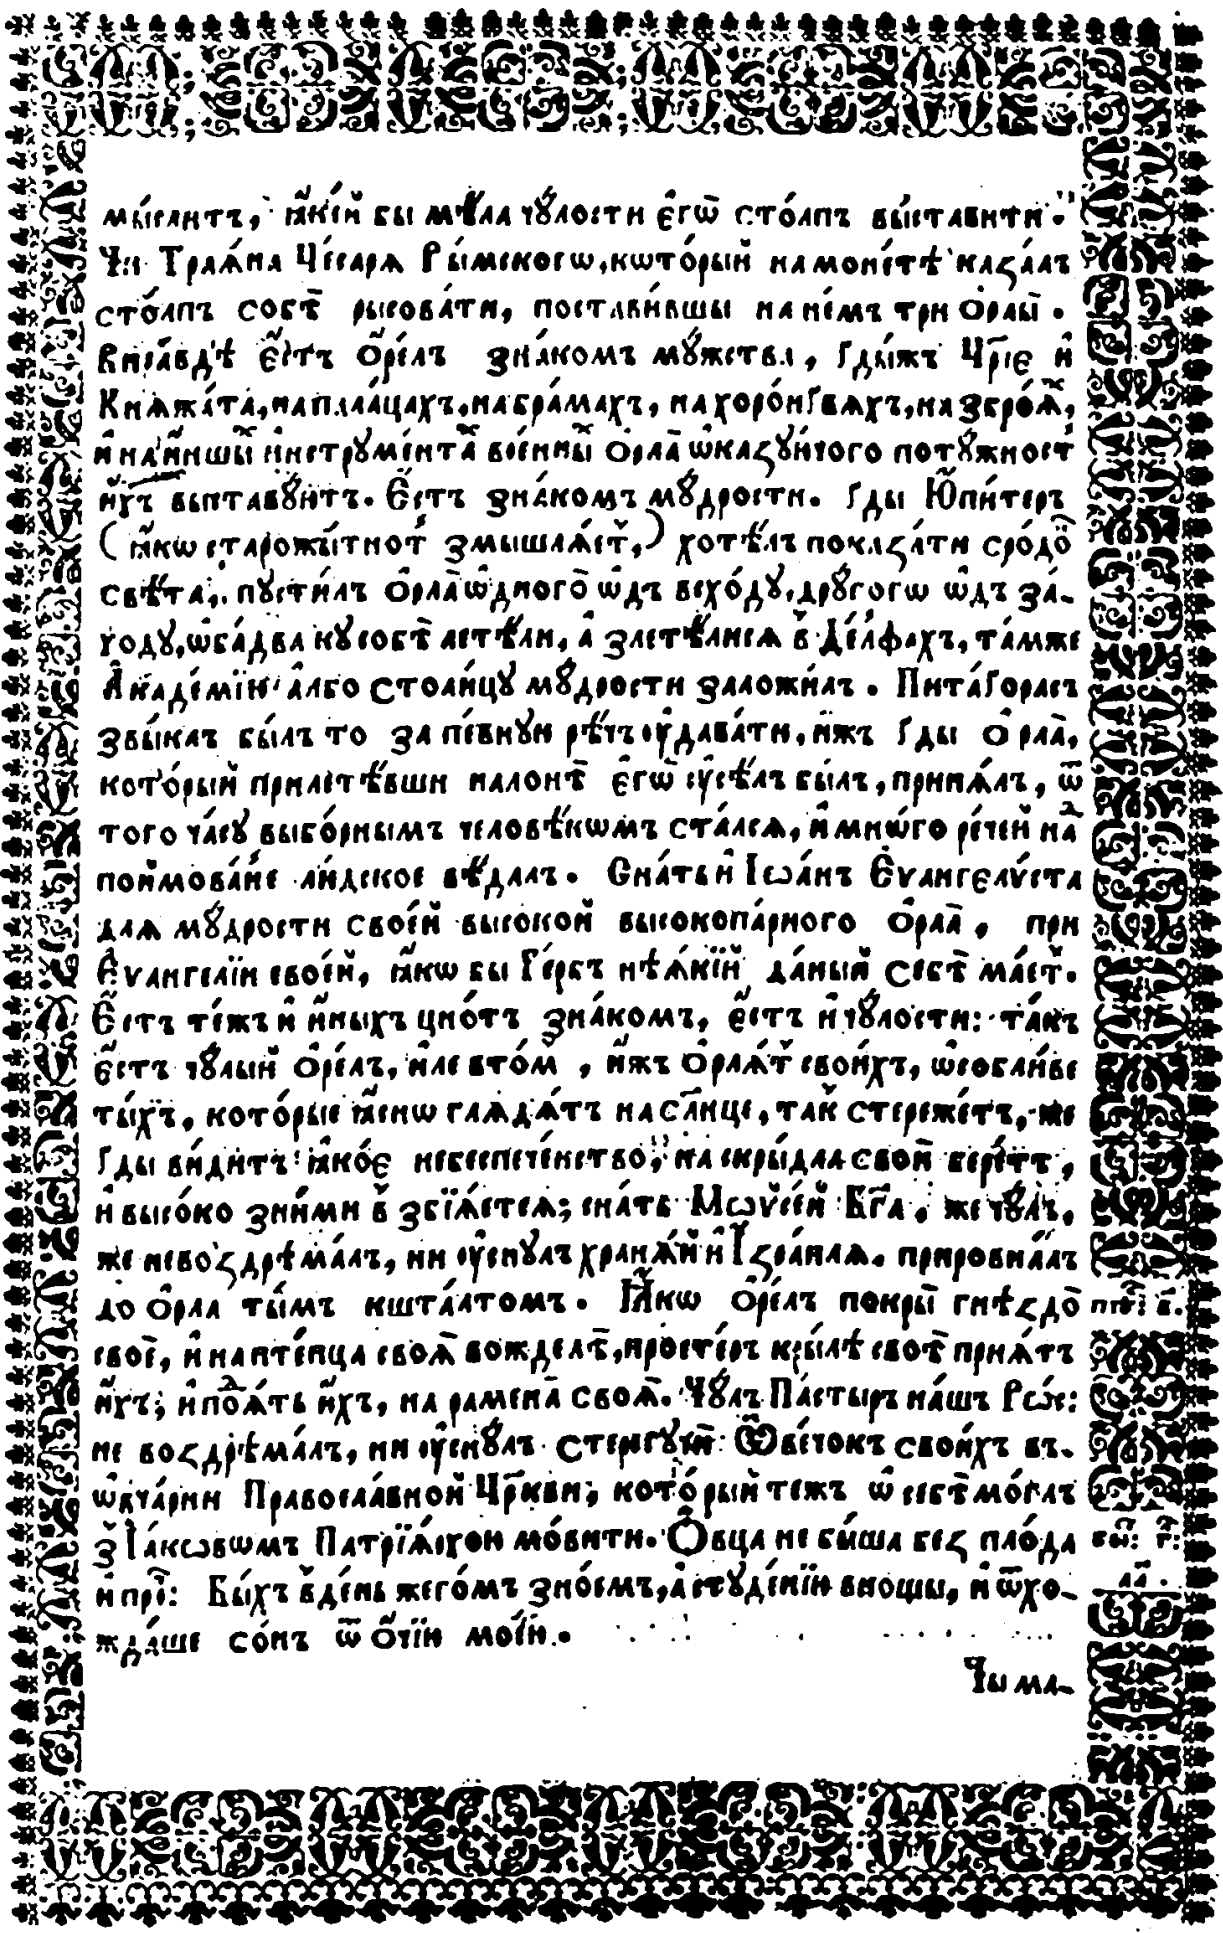 мы́слитъ, ꙗ҆ке́й бы мѣ́ла чꙋ́лости є҆гѡ̀ сто́лпъ вы́ставити.
Чи Траѧ́на Це́саря Ры́мскогѡ, кѡто́рый на моне́тѣ каза́лъ
сто́лпъ собѣ̀ рысова́ти, поста́вившы на не́мъ три О҆рлы̀.
Впра́вдѣ є҆́стъ О҆ре́лъ зна́комъ мꙋ́жества, ґды́жъ Цр҃іє и҆
Кнѧжа́та, на пла́цахъ, на бра́махъ, на хоро́нґвѧхъ, на збро́ѧⷯ,
и҆ на и҆́ншыⷯ и҆нструме́нтаⷯ вое́нныⷯ О҆рла̀ ѡ҆казуючого поту́жност
и҆́хъ выставꙋютъ. Є҆́стъ зна́комъ мꙋ́дрости. Ґды Ю҆пи́теръ
(ꙗ҆́кѡ старожы́тност змышлѧ́ет,) хотѣ́лъ показа́ти сро́докъ
свѣ́та, пусти́лъ О҆рла̀ ѡ҆дного̀ ѿдъ всхо́ду, дрꙋ́гогѡ ѿдъ за́-
ходу, ѡ҆ба́два ку собѣ̀ летѣ́ли, а҆ злетѣ́лисѧ в Де́лфахъ, та́мже
А҆каде́мїю а҆́лбо столи́цу мꙋ́дрости заложи́лъ. Пита́ґорасъ
звы́клъ бы́лъ то за пе́внꙋю рѣ́чъ ꙋ҆дава́ти, и҆́жъ ґды О҆рла̀,
кото́рый прилетѣ́вши на лонѣ̀ є҆гѡ̀ ꙋ҆сѣ́лъ бы́лъ, принѧ́лъ, ѿ
того ча́су выбо́рнымъ человѣ́кѡмъ ста́лсѧ, и҆ мнѡ́го ре́чей наⷣ
поймова́нѐ лю́дское вѣ́далъ. Сна́ть и҆ І҆ѡа́нъ Є҆ѵангелѵ́ста
для мꙋ́дрости своє́й высокой высокопа́рного О҆рла̀, при
Є҆ѵангелїи своє́й, ꙗ҆́кѡ бы Ге́рбъ нѣѧ́кїй да́ный себѣ̀ ма́ет.
Є҆́стъ те́жъ и҆ и҆́ныхъ цно́тъ зна́комъ, є҆́стъ и҆ чꙋ́лости: та́къ
є҆́стъ чꙋ́лый О҆ре́лъ, и҆ле вто́м, и҆́жъ О҆рлѧ́т свои́хъ, ѡ҆собли́ве
ты́хъ, кото́рые ꙗ҆́снѡ глѧдѧ́тъ на сл҃нце, так стереже́тъ, же
ґды ви́дитъ ꙗ҆ко́є небеспече́нство, на скры́дла свои̑ бере́тъ,
и҆ высо́ко зни́ми в збїѧ́етсѧ; сна́ть Мѡѵсе́й Бг҃а, же чꙋ́лъ,
же невоздрѣма́лъ, ни ꙋ҆снулъ хранѧ́й и҆ І҆зра́илѧ. прировна́лъ
до О҆рла ты́мъ кшта́лтомъ. Ꙗ҆́кѡ О҆ре́лъ покры̀ гнѣздо̀
своѐ, и҆ на пте́нца своѧ̀ вожделѣ̀, просте́ръ кры́лѣ своѣ̀ прїѧ́тъ
и҆́хъ; и҆ поⷣѧ́тъ и҆́хъ, на рамена̀ своѧ̀. Чꙋ́лъ Па́стыръ на́шъ Рѡ́с:
не воздрѣма́лъ, ни ꙋ҆снꙋ́лъ стерегу́чи Ѡ҆ве́чокъ свои́хъ въ-
ѡ҆вча́рни Правосла́вной Цр҃кви; кото́рый тежъ ѡ҆ себѣ̀ мо́глъ
з І҆а́кѡвѡмъ Патрїа́рхою мо́вити. О҆вца не бы́ша без пло́да
и҆ прⷪ҇: Бы́хъ в де́нь жего́мъ зно́емъ, а҆ студе́нїю внощы, и҆ ѿхо-
жда́ше со́нъ ѿ О҆́чїю моє́ю.
Чы ма-
бы҃: г҃:
л҃а.